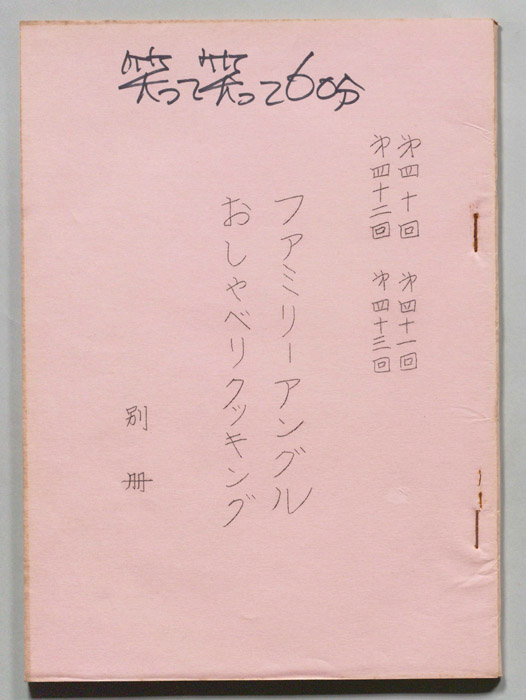 笑って笑って60分
第四十回　第四十一回
第四十二回　第四十三回
ファミリーアングル
おしゃべりクッキング
別冊